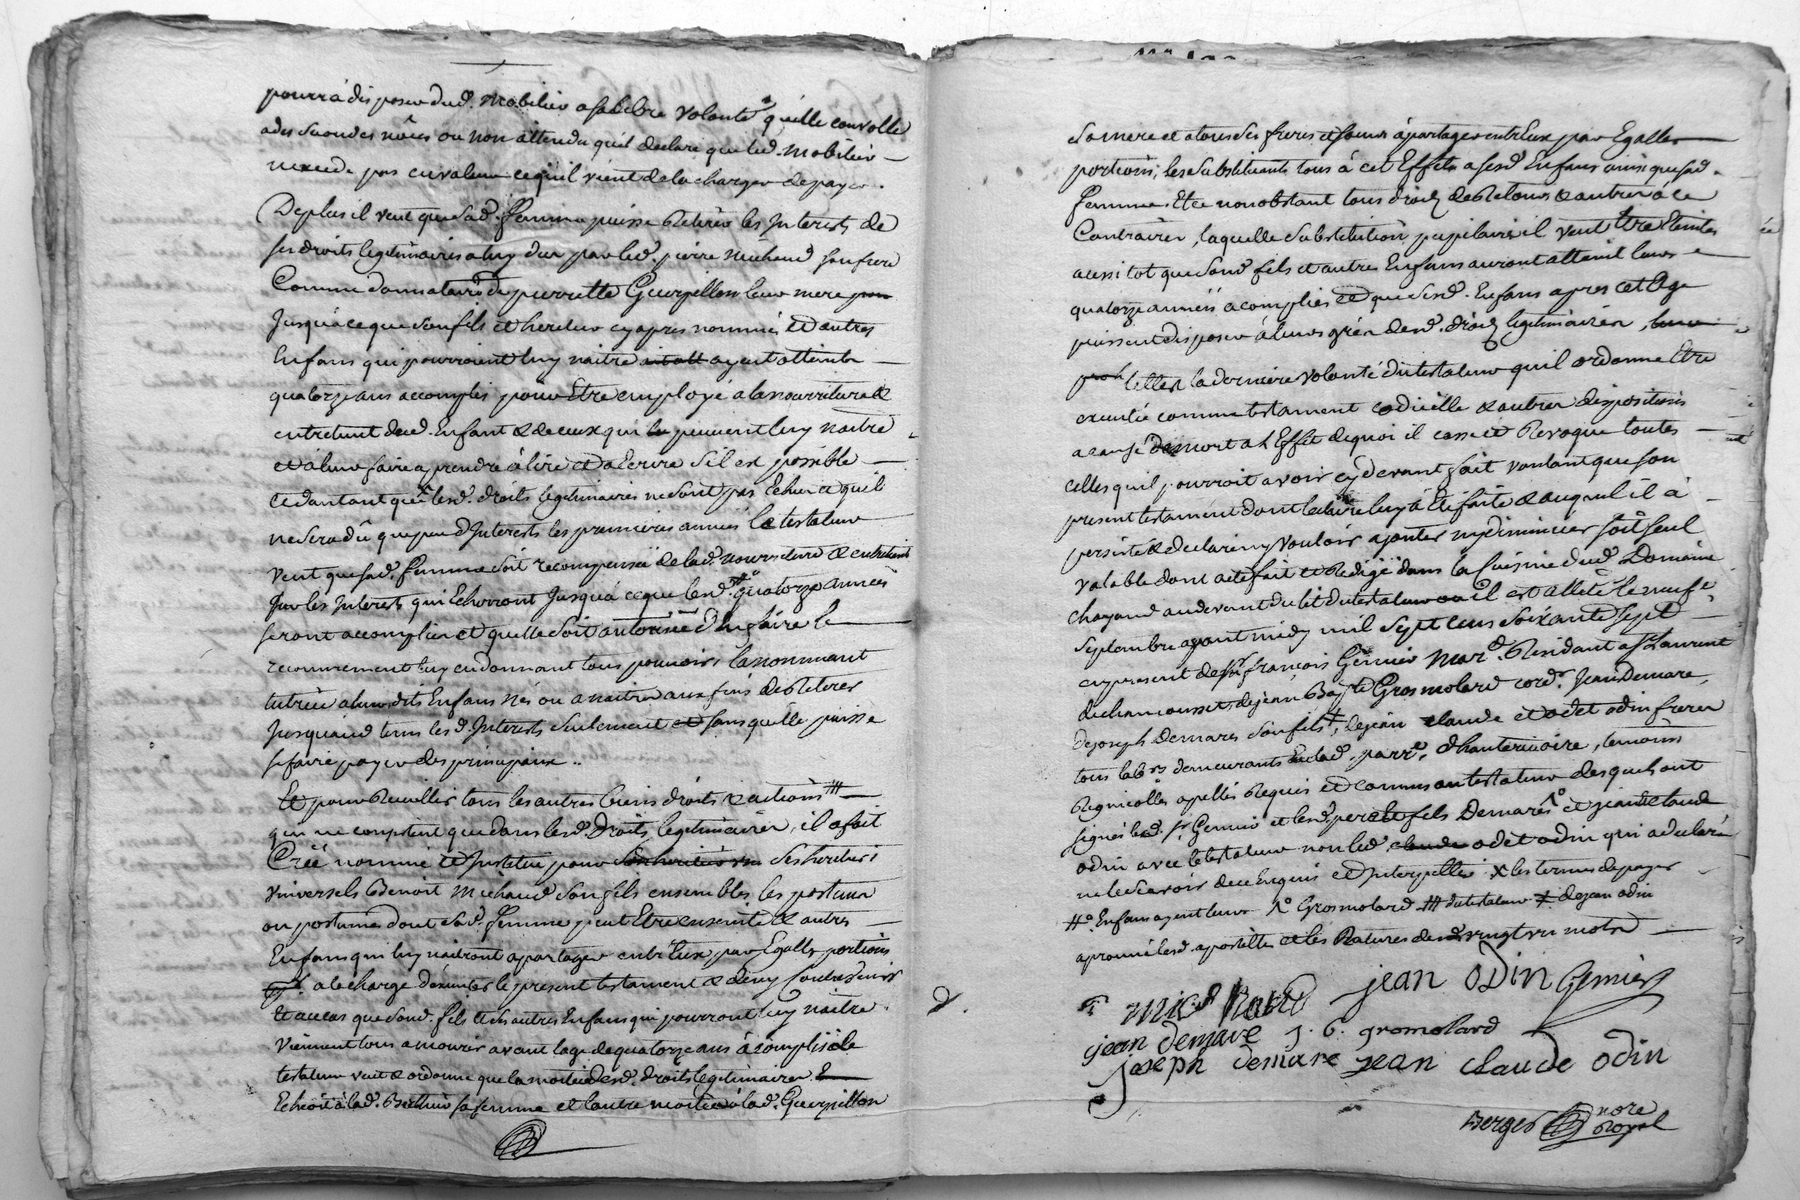 pourra disposer dud. mobilier a sa libre volonté qu'elle convolle
a des secondes nôces ou non attendu quil declare que led. mobilier
n'excede pas en valeur ce quil vient de la charger de payer.
De plus il veut que sad. femme puisse retirer les Interests de
ses droits legitimaires a luy dus par led. pierre michaud son frere
Comme donnataire de pierrette Guerpillon leur mere
Jusqu'à ce que son fils et heritier cy apres nommé et autres
Enfans qui pourroient luy naitre ayent atteint
quatorze ans accomplis pour Etre employé a la nourriture &
entretient dud. Enfant & de ceux qui peuvent luy naitre
et à leur faire aprendre à lire et a Ecrire s'il est possible
et d'autant que lesd. droits legitimaires ne sont pas Echus et quil
ne sera dû que peu d'Interests les premieres années le testateur
veut que sad. femme soit recompensée de lad. nourriture & entretient
sur les Interests qui Echoiront Jusqu'à ce que lesd. quatorze années
seront accomplies et quelle soit autorisée d'en faire le
recouvrement luy en donnant tous pouvoirs la nommant
tutrice a leursdits Enfans nés ou a naitre aux fins de retirer
Jusqu'aud. tems lesd. Interests seulement et sans quelle puisse
se faire payer des principaux ..
Et pour recueillir tous les autres biens droits & actions #
qui ne consistent que dans lesd. Droits legitimaires, il a fait
Créé nommé et Institué pour ses heritiers
universels Benoit michaud son fils ensembles les postumes
ou postume dont sad. femme peut Etre enceinte & autres
Enfans qui luy naitront a partager entr'Eux par Egalles portions
a la charge d'executer le present testament & d'e ny contrevenir
Et au cas que sond. fils et ses autres Enfans qui pourront luy naitre
viennent tous a mourir avant l'age de quatorze ans accomplis le
testateur veut & ordonne que la moitié desd. droits legitimaires
Echeoit à lad. sa femme et l'autre moitié à lad. Guerpillon
sa mere et a tous ses freres et soeurs à partager entr'Eux par Egalles
portions, les substituants tous à cet Effet a sesd. Enfans ainsi que sad.
femme. Et ce nonobstant tous droits de retour & autres a ce
Contraires, laquelle substitution pupilaire il veut Etre Eteinte
aussi tot que sond. fils et autres Enfans auront atteint leurs
quatorze années accomplies et que sesd. Enfans apres cet age
puissent disposer à leurs grés desd. droits legitimaires,
telle est la derniere volonté du testateur quil ordonne Etre
executée comme testament codicille & autres dispositions
a cause de mort a l'Effet de quoi il casse et revoque toutes
celles quil pourroit avoir cy devant fait voulant que son
present testament dont lecture luy à Eté faite & auquel il à
persisté & declaré ny vouloir ajouter ny diminuer soit seul
valable dont acte fait et redigé dans la cuisine dud. Domaine
chazaud au devant du lit du testateur ou il est allité le neufe
Septembre avant midy mil sept cens soixante sept
en present de sr françois Gennier mar.d residant a St Laurent
de chamousset, de jean Bap.te Grosmolard cord.r Jean Demare,
de joseph Demares son fils, de jean claude et odet odin freres
tous lab.rs demeurants en lad. parr.e d'hauterivoire, temoins
regnicolles apellés requis et connus au testateur desquels ont
signés led. sr Gennier et lesd. pere & fils Demares 1.° et jean claude
odin avec le testateur non led. odet odin qui a declaré
ne le scavoir de ce Enquis et Interpellés. x les termes de payer
#° Enfans ayent leurs 1° Grosmolard # du testateur ≠ de jean odin
aprouvé lesd. apostilles et les ratures de vingt un mots
jean odin Gennier
jean demare J. B. gromolard
joseph demare jean claude odin
Berger nore
Royal